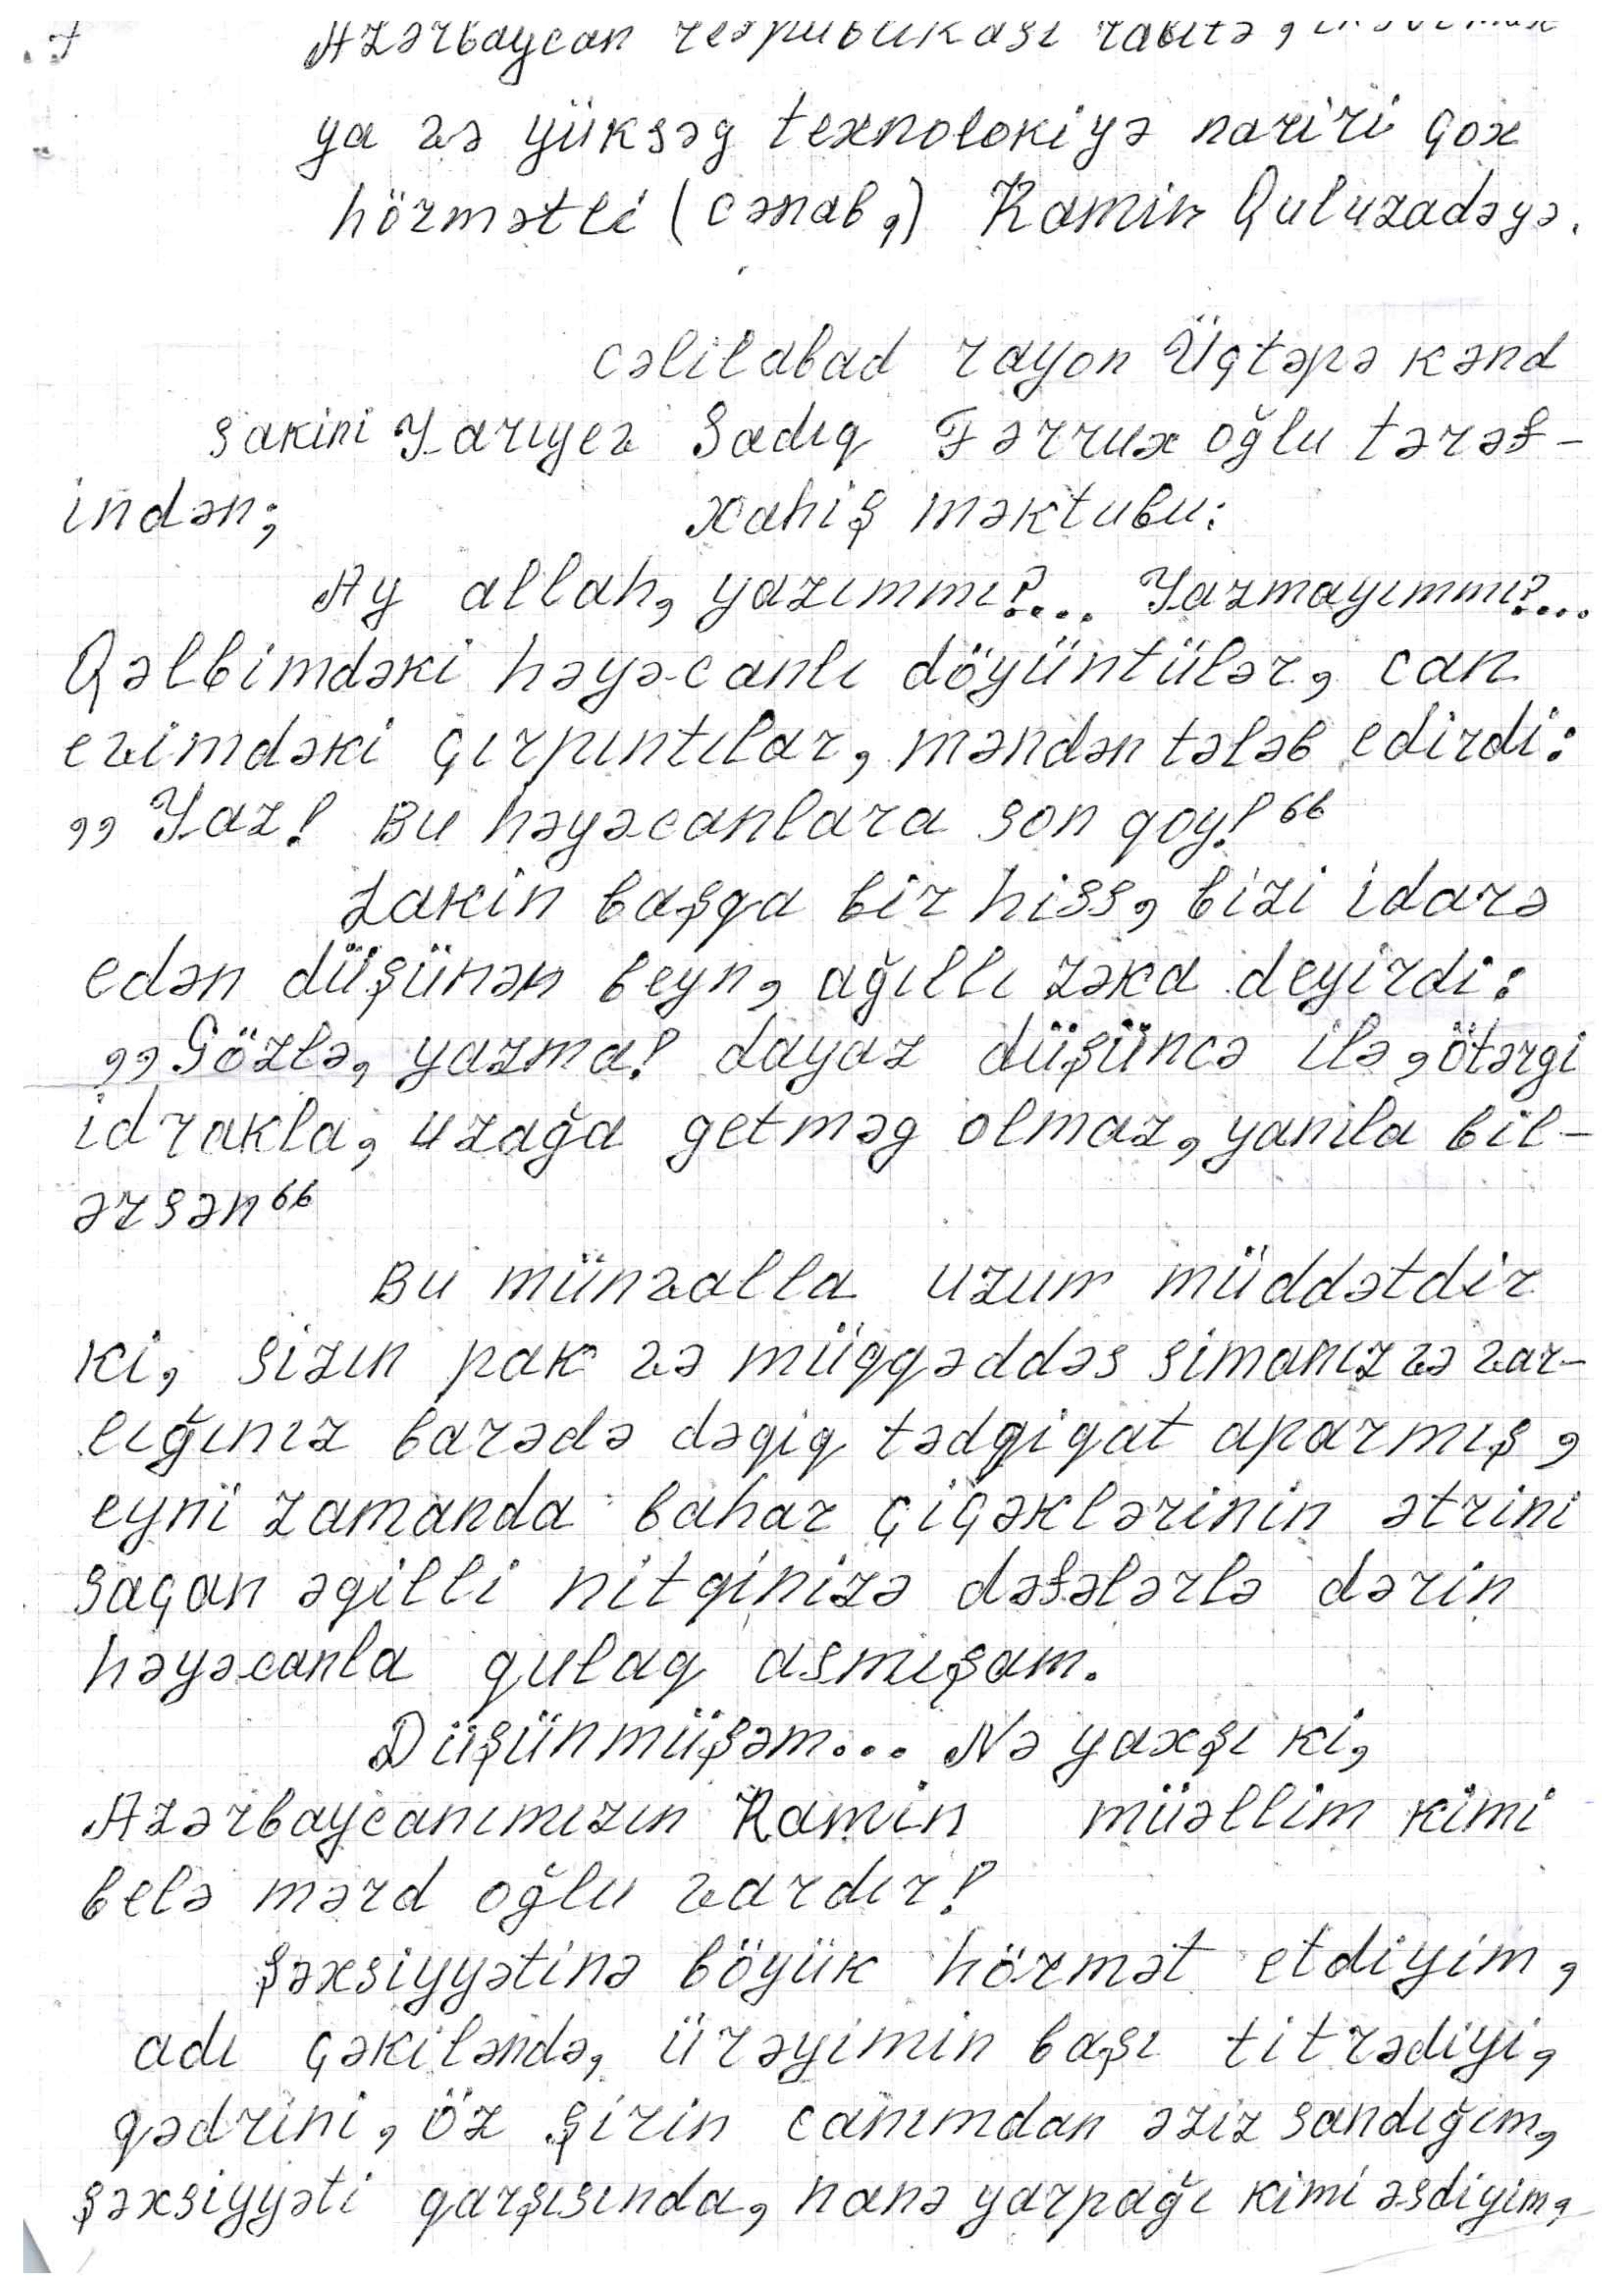 Azərbaycan respublikası rabitə,
ya və yüksəg texnolokiya naziri çox
hörmətli (cənab,) Ramin Quluzadəyə.
cəlilabad rayon Üçtəpə kənd
sakini Yarıyev Sadıq Fərrux oğlu tərəf-
indən; xahiş məktubu:
Ay allah, yazımmı?... Yazmayımmı?...
Qəlbimdəki həyəcanlı döyüntülər, can
evimdəki çırpıntılar, məndən tələb edirdi:
,,Yaz! Bu həyəcanlara son qoy!"
Lakin başqa bir hiss, bizi idarə
edən düşünən beyn, ağıllı zəka deyirdi:
,,Gözlə, yazma! dayaz düşüncə ilə, ötərgi
idrakla, uzağa getməg olmaz, yanıla bil-
ərsən"
Bu münvalla uzun müddətdir
ki, sizin pak və müqqəddəs simanız və var-
lığınız barədə dəqiq tədqiqat aparmış,
eyni zamanda bahar çiçəklərinin ətrini
saçan əqilli nitqinizə dəfələrlə dərin
həyəcanla qulaq asmışam.
Düşünmüşəm... Nə yaxşı ki,
Azərbaycanımızın Ramin müəllim kimi
belə mərd oğlu vardır!
şəxsiyyətinə böyük hörmət etdiyim,
adı çəkiləndə, ürəyimin başı titrədiyi,
qədrini, öz şirin canımdan əziz sandığım,
şəxsiyyəti qarşısında, nanə yarpağı kimi əsdiyim,